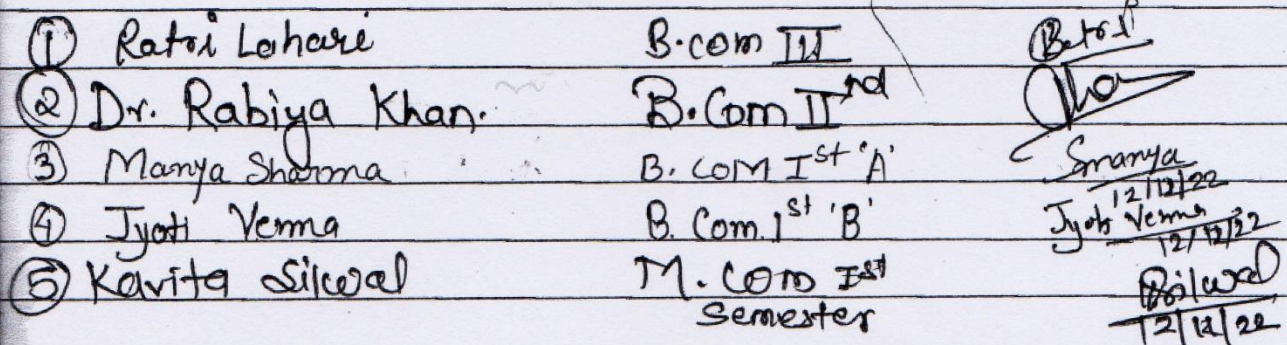 ① Ratri Lahari B.com III
② Dr. Rabiya Khan. B.Com IInd
③ Manya Sharma B. COM Ist 'A' Smanya 12/12/22
④ Jyoti Verma B. Com. 1st 'B' Jyoti Verma 12/12/22
⑤ Kavita Silwal M. com Ist 12/12/22
Semester